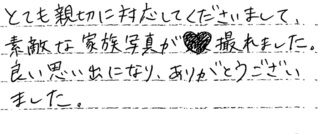 とても親切に対応してくださいまして、
素敵な家族写真が撮れました。
良い思い出になり、ありがとうござい
ました。